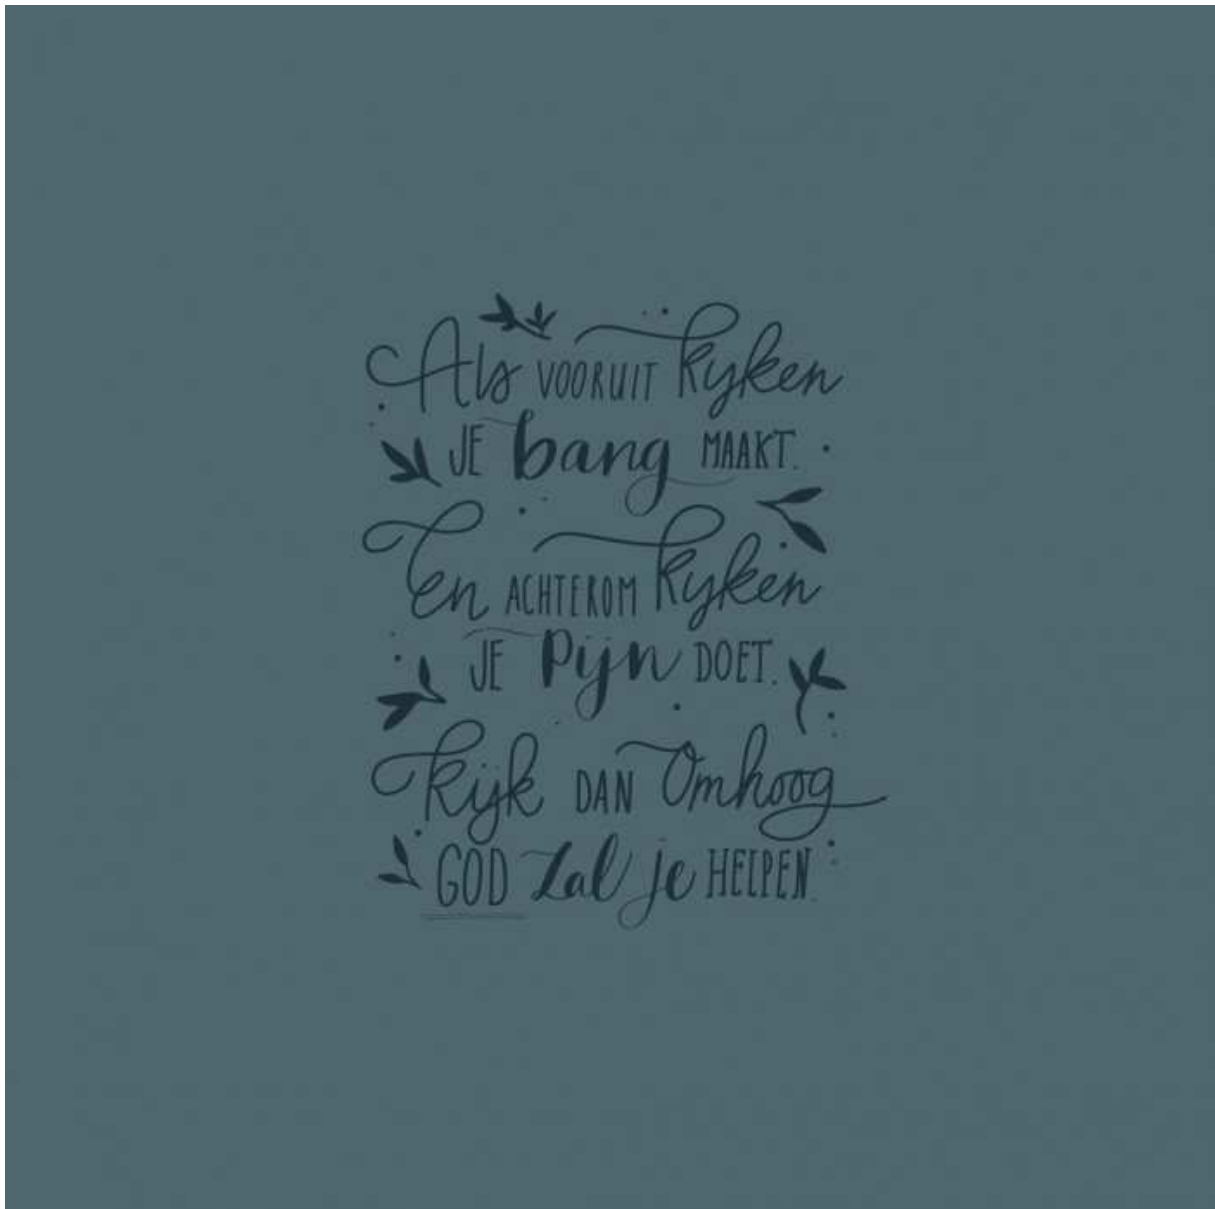 Als VOORUIT kijken
JE bang MAAKT.
En ACHTEROM kijken
JE Pijn DOET.
Kijk DAN Omhoog
GOD Zal je HELPEN.